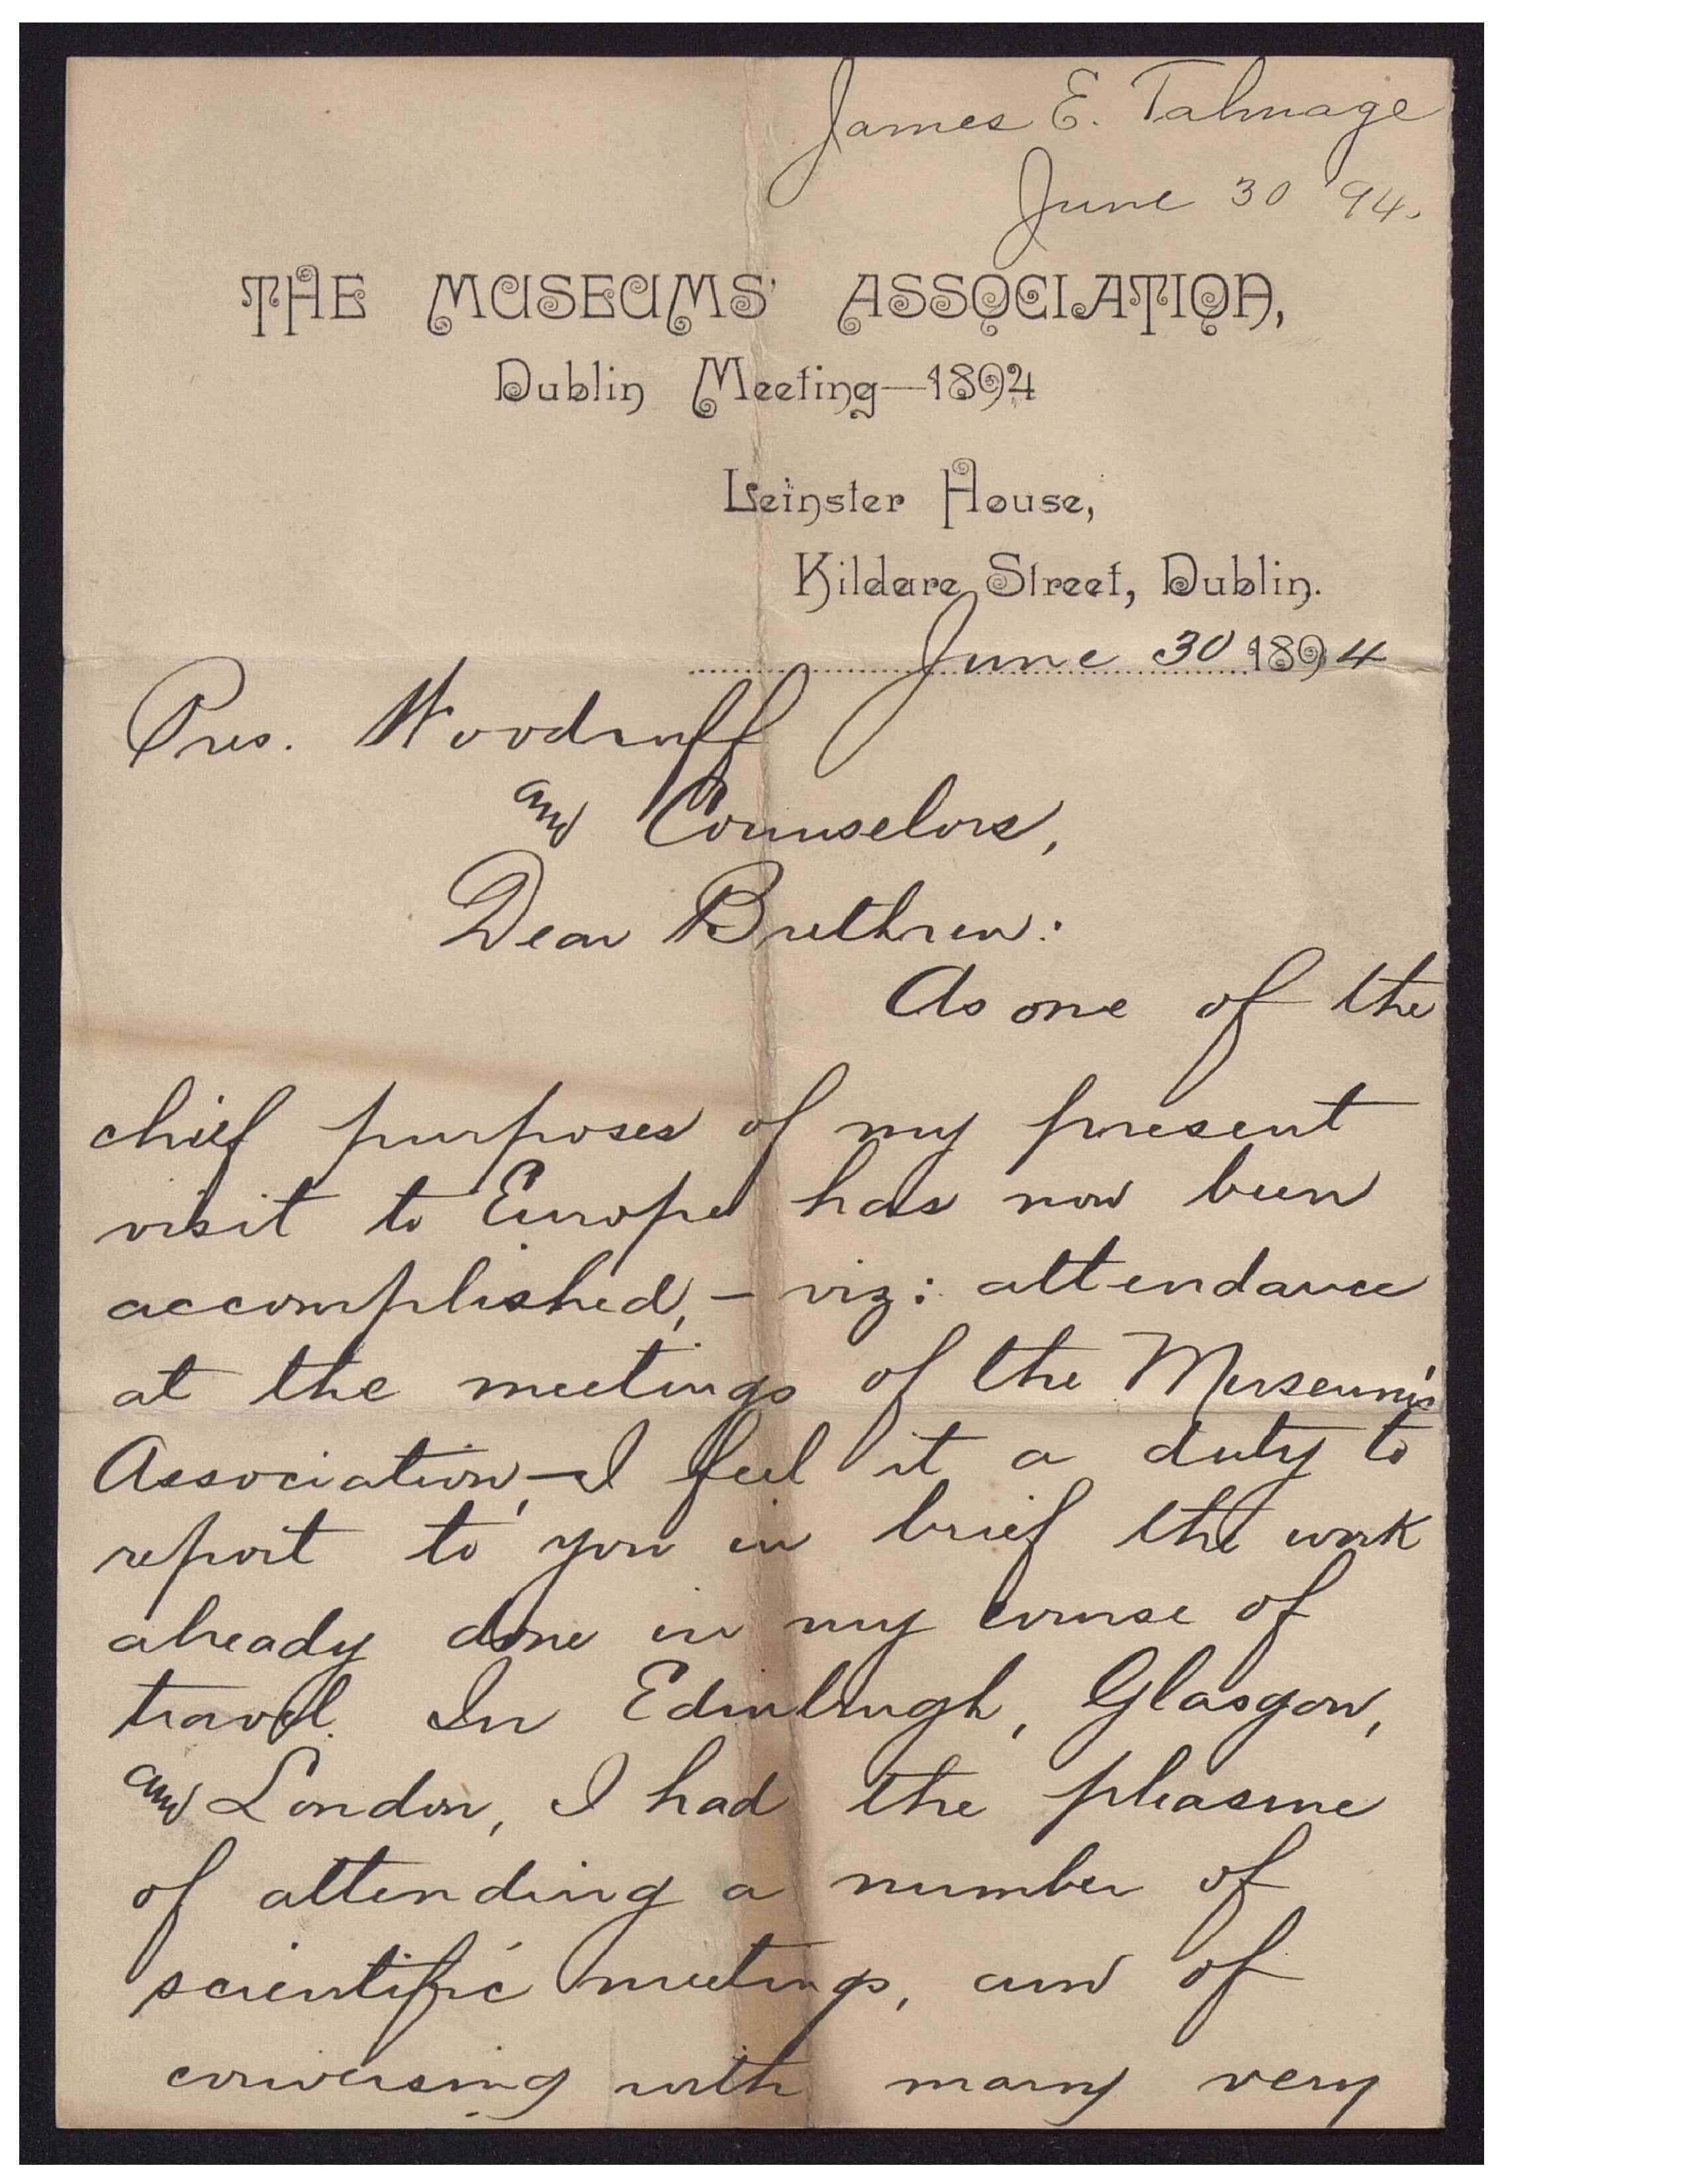 James E. Talmage
June 30 '94.
THE MUSEUMS' ASSOCIATION,
Dublin Meeting—1894
Leinster House,
Kildare Street, Dublin.
June 30 1894
Pres. Woodruff
and Counselors,
Dear Brethren:
As one of the
chief purposes of my present
visit to Europe has now been
accomplished, – viz: attendance
at the meetings of the Museum's
Association, – I feel it a duty to
report to you in brief the work
already done in my course of
travel. In Edinburgh, Glasgow,
and London, I had the pleasure
of attending a number of
scientific meetings, and of
conversing with many very